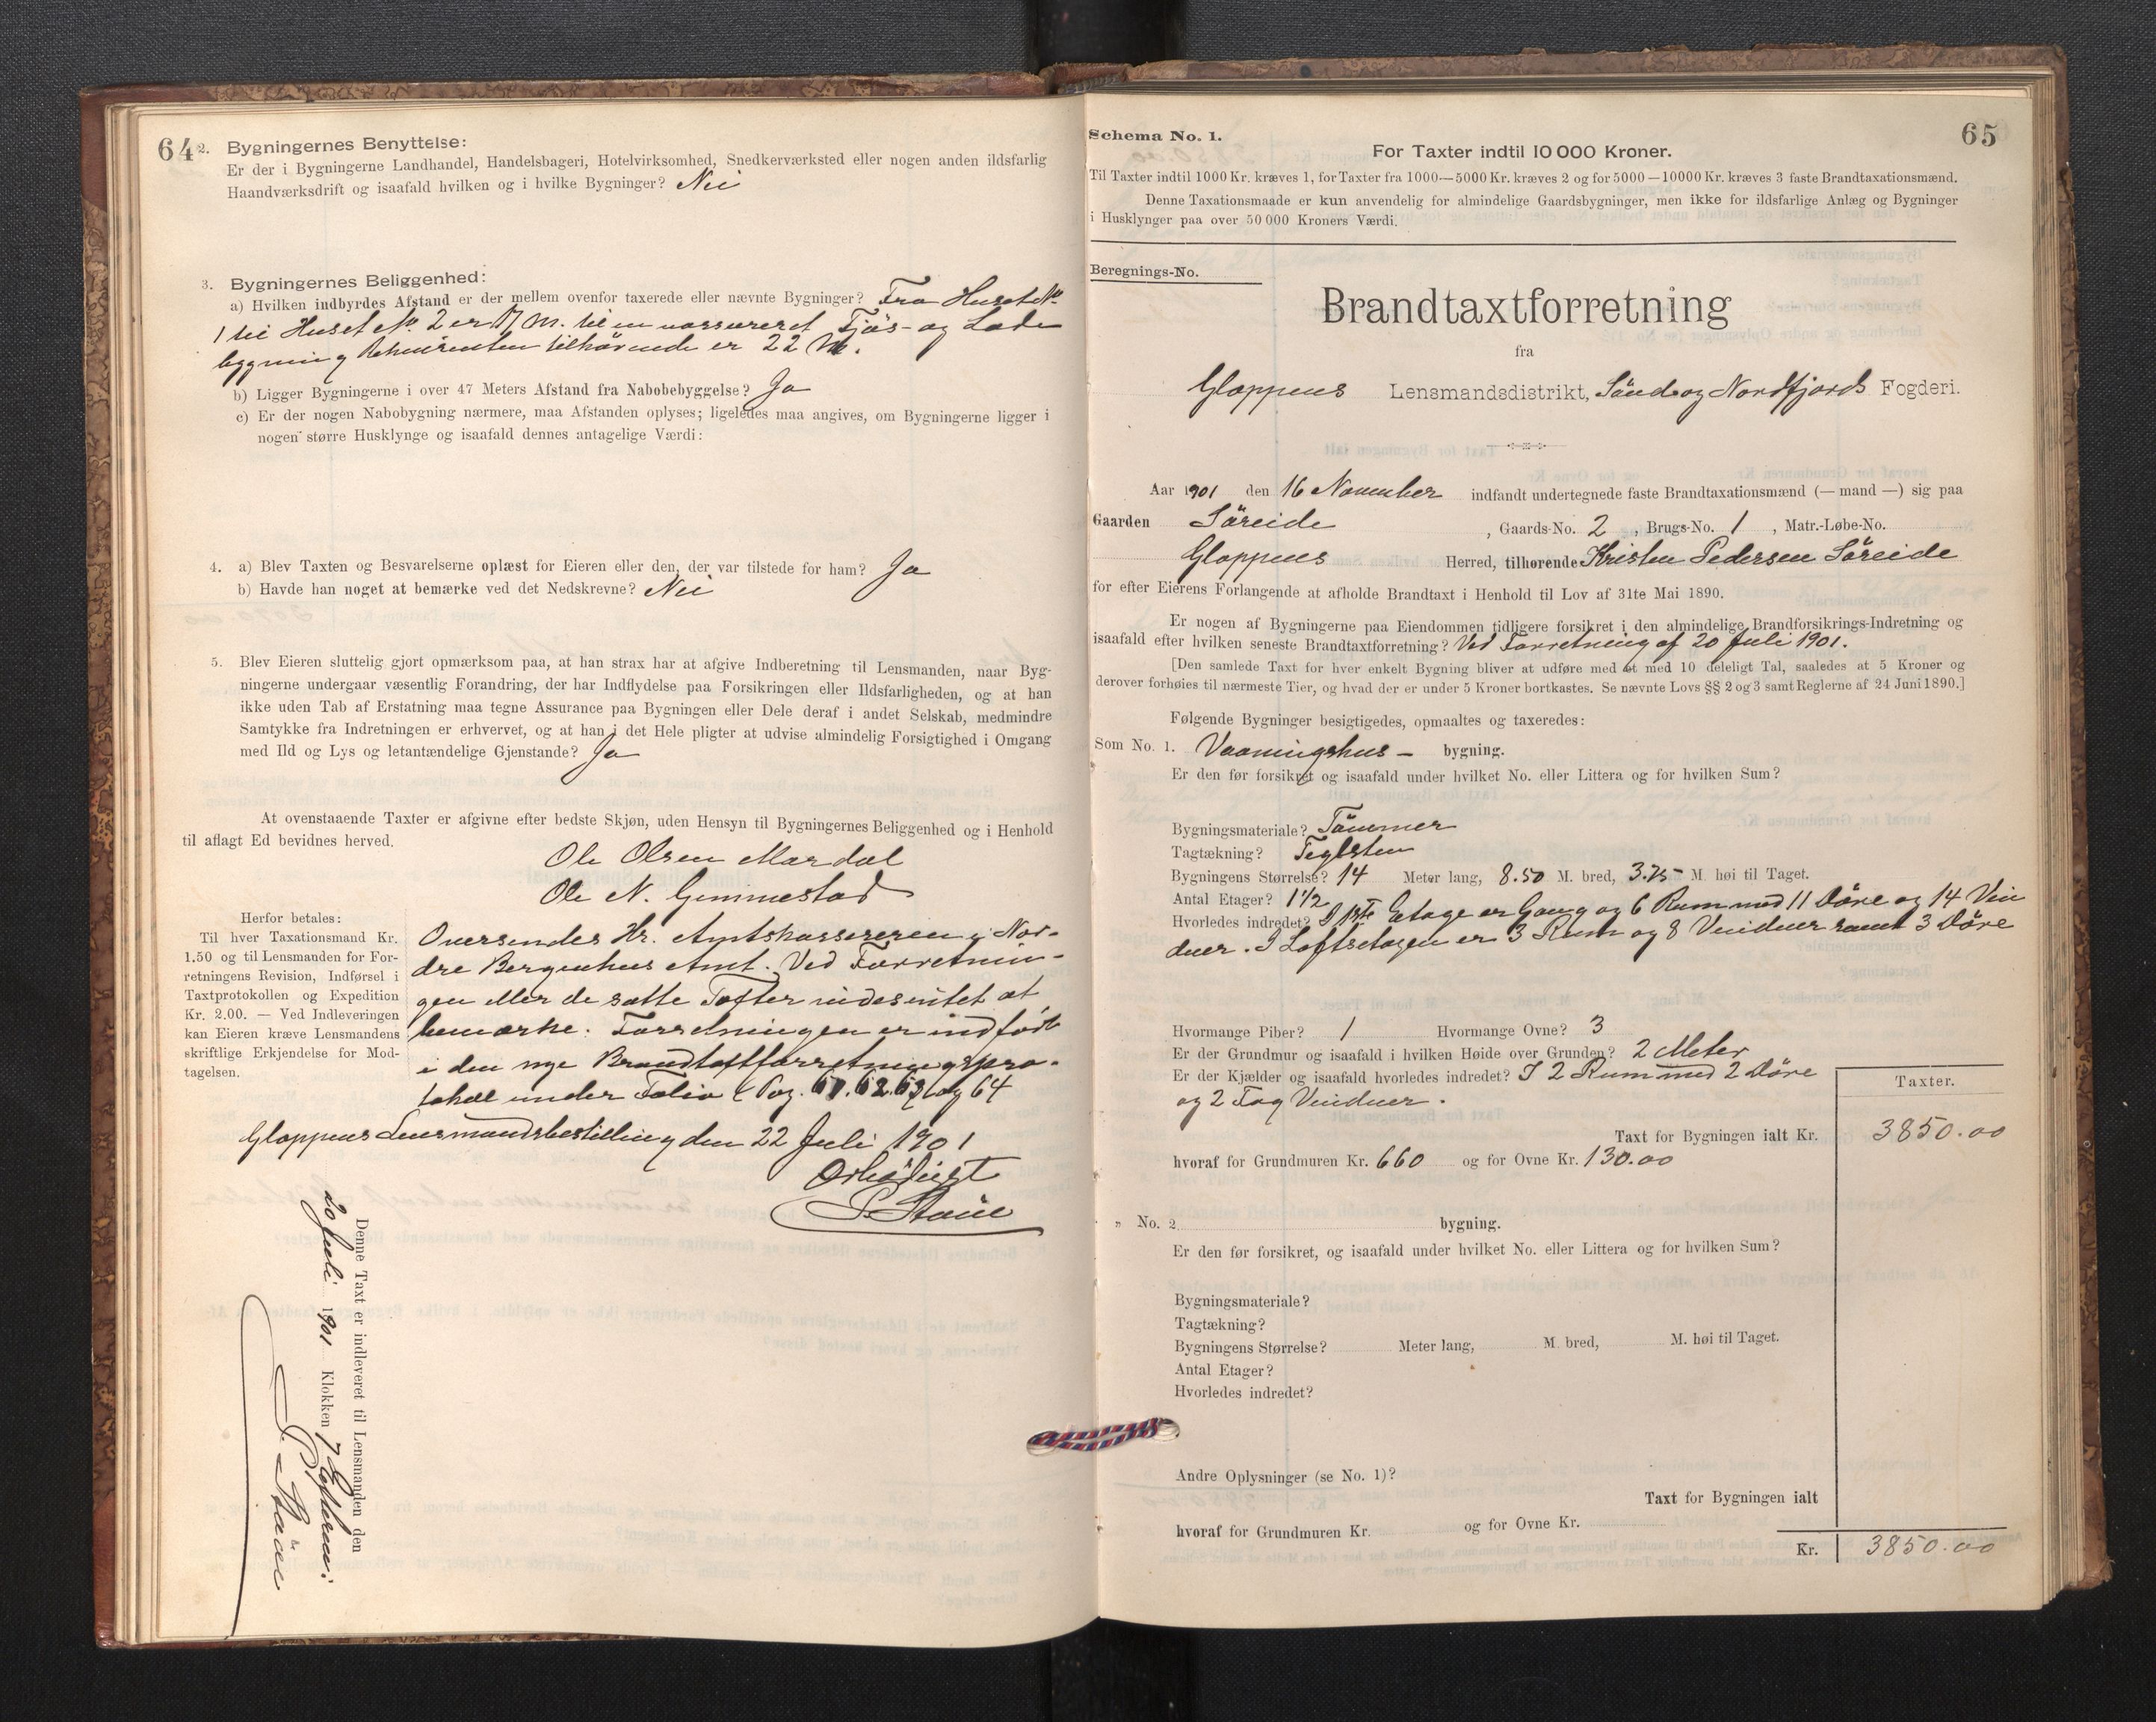 64
2. Bygningernes Benyttelse:
Er der i Bygningerne Landhandel, Handelsbageri, Hotelvirksomhed, Snedkerværksted eller nogen anden ildsfarlig
Haandværksdrift og isaafald hvilken og i hvilke Bygninger? Nei
3. Bygningernes Beliggenhed:
a) Hvilken indbyrdes Afstand er der mellem ovenfor taxerede eller nævnte Bygninger? Fra Huset No
1 til Huset No 2 er 17 m. til en uassureret Fjøs- og Lade
bygning Rekvirenten tilhørende er 22 M.
b) Ligger Bygningerne i over 47 Meters Afstand fra Nabobebyggelse? Ja
c) Er der nogen Nabobygning nærmere, maa Afstanden oplyses; ligeledes maa angives, om Bygningerne ligger i
nogen større Husklynge og isaafald dennes antagelige Værdi:
4. a) Blev Taxten og Besvarelserne oplæst for Eieren eller den, der var tilstede for ham? Ja
b) Havde han noget at bemærke ved det Nedskrevne? Nei
5. Blev Eieren sluttelig gjort opmærksom paa, at han strax har at afgive Indberetning til Lensmanden, naar Byg-
ningerne undergaar væsentlig Forandring, der har Indflydelse paa Forsikringen eller Ildsfarligheden, og at han
ikke uden Tab af Erstatning maa tegne Assurance paa Bygningen eller Dele deraf i andet Selskab, medmindre
Samtykke fra Indretningen er erhvervet, og at han i det Hele pligter at udvise almindelig Forsigtighed i Omgang
med Ild og Lys og letantændelige Gjenstande? Ja
At ovenstaaende Taxter er afgivne efter bedste Skjøn, uden Hensyn til Bygningernes Beliggenhed og i Henhold
til aflagt Ed bevidnes herved.
Ole Olsen Mardal
Ole N. Gimmestad
Herfor betales:
Til hver Taxationsmand Kr.
1.50 og til Lensmanden for For-
retningens Revision, Indførsel i
Taxtprotokollen og Expedition
Kr. 2.00. — Ved Indleveringen
kan Eieren kræve Lensmandens
skriftlige Erkjendelse for Mod-
tagelsen.
Oversendes Hr. Amtskassereren i Nor-
dre Bergenhus Amt. Ved Forretnin-
gen eller de satte Taxter indes intet at
bemærke. Forretningen er indført
i den nye Brandtaxtforretningspro-
tokol under Folio (Pag. 61. 62. 63 og 64
Gloppens Lensmandsbestilling den 22 Juli 1901
Ærbødigst
Denne Taxt er indleveret til Lensmanden den
20 Juli 1901 Klokken 7 Efterm.
65
Schema No. 1.
For Taxter indtil 10 000 Kroner.
Til Taxter indtil 1000 Kr. kræves 1, for Taxter fra 1000—5000 Kr. kræves 2 og for 5000—10000 Kr. kræves 3 faste Brandtaxationsmænd.
Denne Taxationsmaade er kun anvendelig for almindelige Gaardsbygninger, men ikke for ildsfarlige Anlæg og Bygninger
i Husklynger paa over 50 000 Kroners Værdi.
Beregnings-No.
Brandtaxtforretning
fra
Gloppens Lensmandsdistrikt, Sønd og Nordfjords Fogderi.
Aar 1901 den 16 November indfandt undertegnede faste Brandtaxationsmænd (— mand —) sig paa
Gaarden Søreide, Gaards-No. 2, Brugs-No. 1, Matr.-Løbe-No.
Gloppens Herred, tilhørende Kristen Pedersen Søreide
for efter Eierens Forlangende at afholde Brandtaxt i Henhold til Lov af 31te Mai 1890.
Er nogen af Bygningerne paa Eiendommen tidligere forsikret i den almindelige Brandforsikrings-Indretning og
isaafald efter hvilken seneste Brandtaxtforretning? Ved Forretning af 20 Juli 1901.
[Den samlede Taxt for hver enkelt Bygning bliver at udføre med et med 10 deleligt Tal, saaledes at 5 Kroner og
derover forhøies til nærmeste Tier, og hvad der er under 5 Kroner bortkastes. Se nævnte Lovs §§ 2 og 3 samt Reglerne af 24 Juni 1890.]
Følgende Bygninger besigtigedes, opmaaltes og taxeredes:
Som No. 1. Vaaningshus - bygning.
Er den før forsikret og isaafald under hvilket No. eller Littera og for hvilken Sum?
Bygningsmateriale? Tømmer
Tagtækning? Teglsten
Bygningens Størrelse? 14 Meter lang, 8.50 M. bred, 3.75 M høi til Taget.
Antal Etager? 1½
Hvorledes indredet? I 1ste Etage er Gang og 6 Rum med 11 Døre og 14 Vin
duer. I Loftsetagen er 3 Rum og 8 Vinduer samt 3 Døre
Hvormange Piber? 1 Hvormange Ovne? 3
Er der Grundmur og isaafald i hvilken Høide over Grunden? 2 Meter
Er der Kjælder og isaafald hvorledes indredet? I 2 Rum med 2 Døre
og 2 Fag Vinduer.
Taxter.
Taxt for Bygningen ialt Kr. 3850.00
hvoraf for Grundmuren Kr. 660 og for Ovne Kr. 130.00
" No. 2 bygning.
Er den før forsikret, og isaafald under hvilket No. eller Littera og for hvilken Sum?
Bygningsmateriale?
Tagtækning?
Bygningens Størrelse? Meter lang, M. bred, M. høi til Taget.
Antal Etager?
Hvorledes indredet?
Andre Oplysninger (se No. 1)?
Taxt for Bygningen ialt
hvoraf for Grundmuren Kr. og for Ovne Kr.
Kr. 3850.00